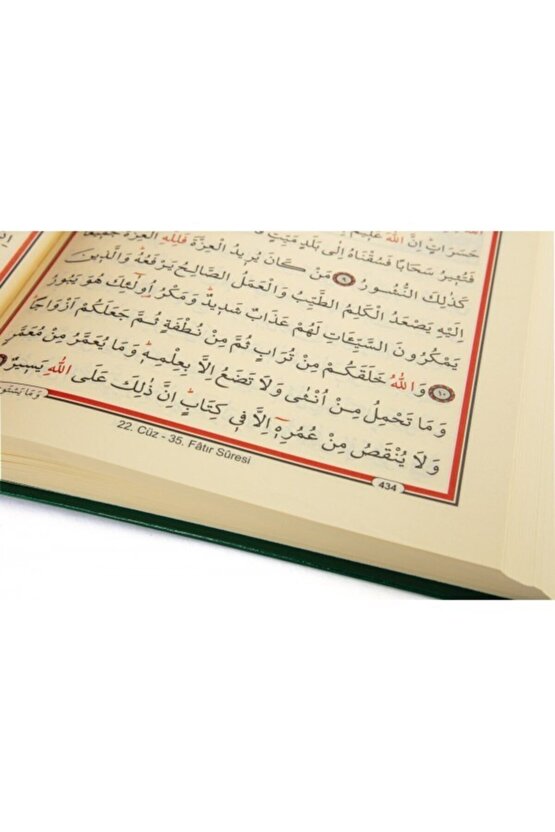 حَسَرَاتٍ اِنَّ اللّٰهَ عَلِيمٌ
فَتُثِيرُ سَحَابًا فَسُقْنَاهُ اِلٰى بَلَدٍ مَيِّتٍ
كَذٰلِكَ النُّشُورُ ٩ مَنْ كَانَ يُرِيدُ الْعِزَّةَ فَلِلّٰهِ الْعِزَّةُ جَمِيعًا
اِلَيْهِ يَصْعَدُ الْكَلِمُ الطَّيِّبُ وَالْعَمَلُ الصَّالِحُ يَرْفَعُهُ وَالَّذِينَ
يَمْكُرُونَ السَّيِّـَٔاتِ لَهُمْ عَذَابٌ شَدِيدٌ وَمَكْرُ اُولٰٓئِكَ هُوَ يَبُورُ
١٠ وَاللّٰهُ خَلَقَكُمْ مِنْ تُرَابٍ ثُمَّ مِنْ نُطْفَةٍ ثُمَّ جَعَلَكُمْ اَزْوَاجًا
وَمَا تَحْمِلُ مِنْ اُنْثٰى وَلَا تَضَعُ اِلَّا بِعِلْمِهٖ وَمَا يُعَمَّرُ مِنْ مُعَمَّرٍ
وَلَا يُنْقَصُ مِنْ عُمُرِهٖٓ اِلَّا فِي كِتَابٍ اِنَّ ذٰلِكَ عَلَى اللّٰهِ يَسِيرٌ
22. Cüz - 35. Fâtır Sûresi
434